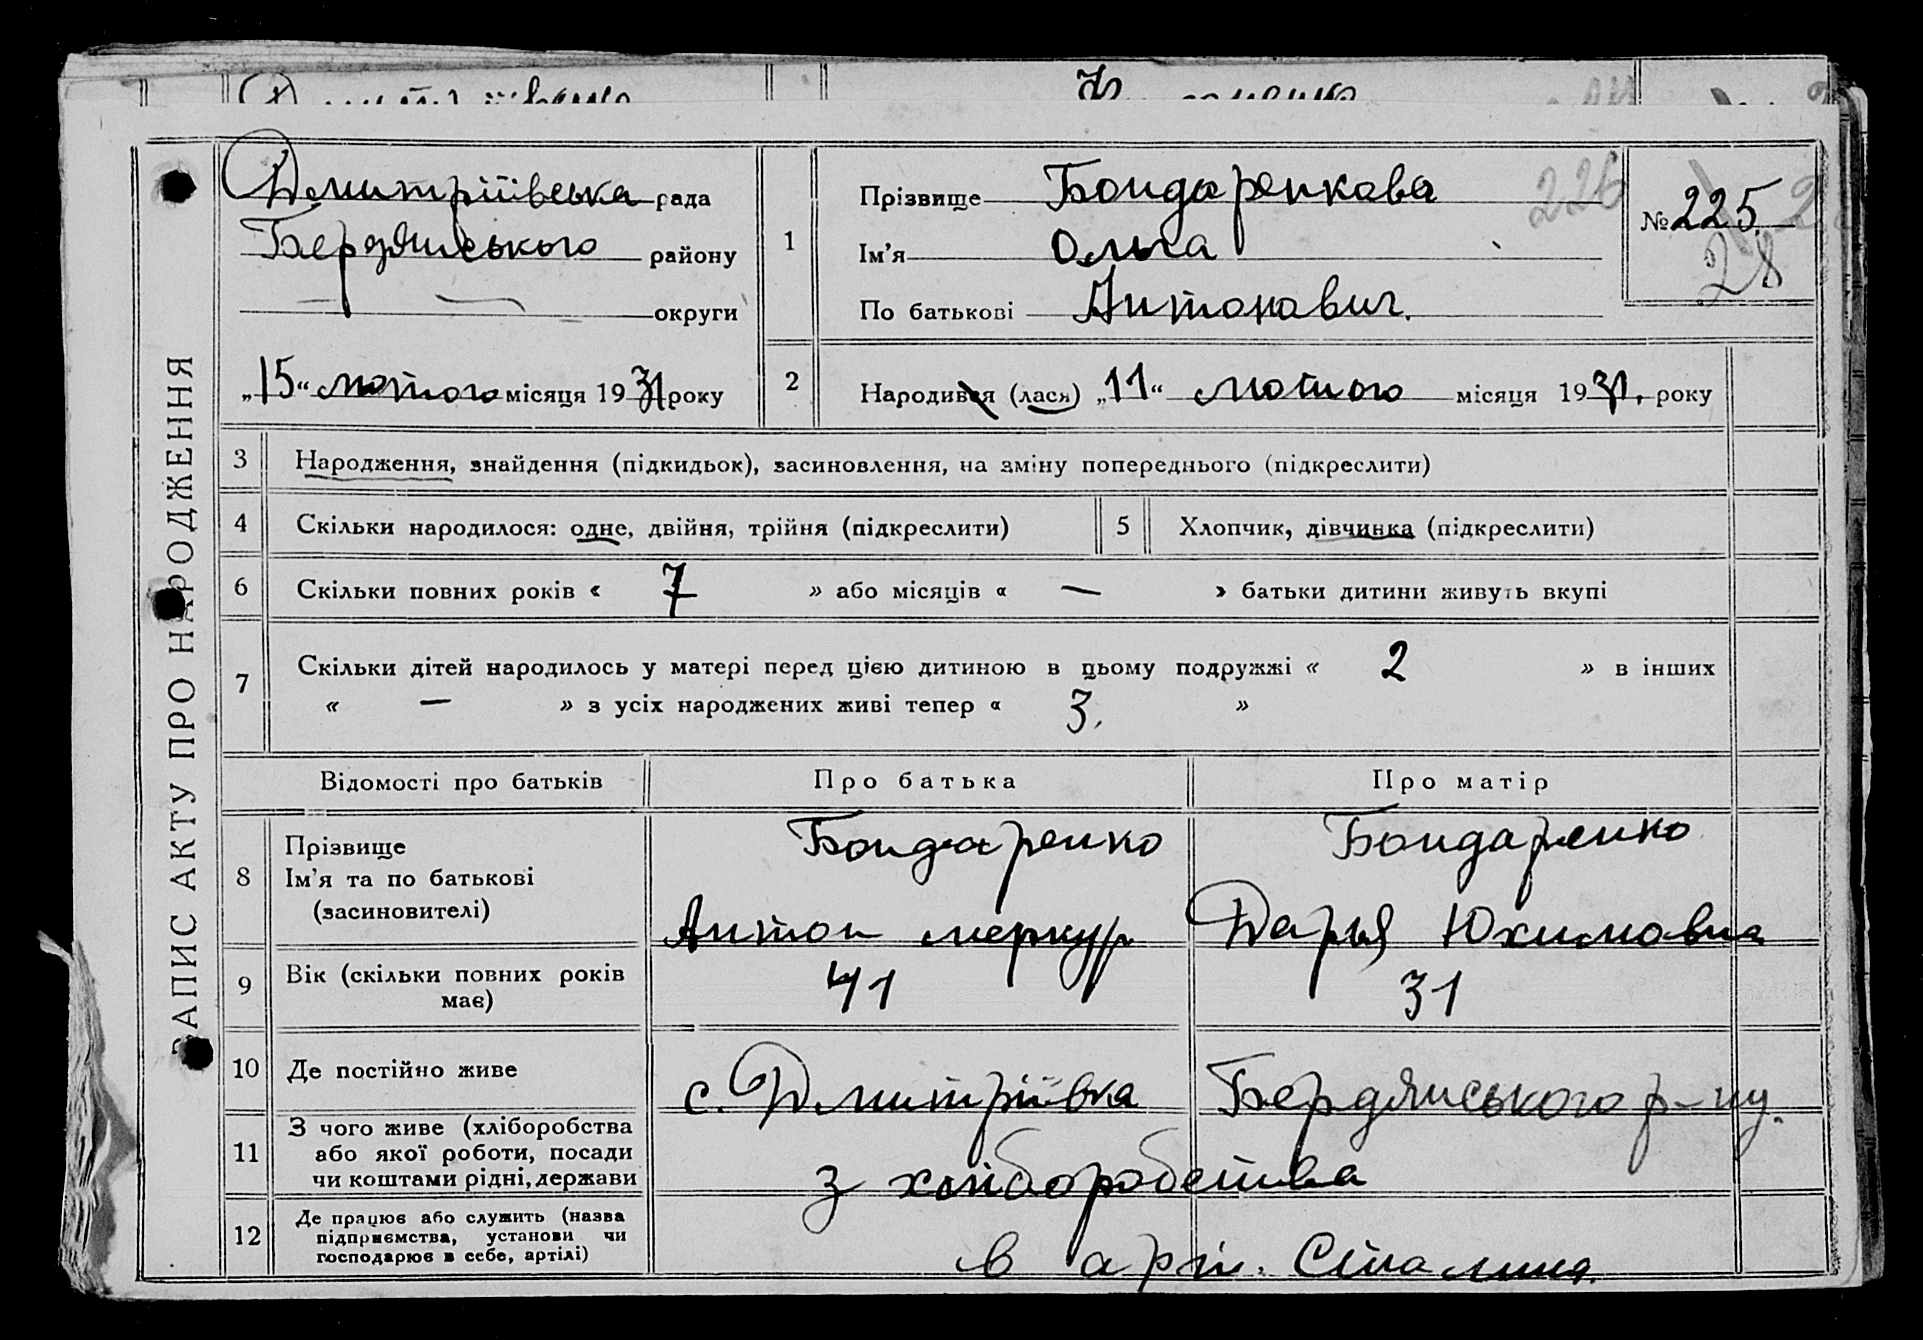 ЗАПИС АКТУ ПРО НАРОДЖЕННЯ
Дмитріївська рада
Бердянського району
— — округи
„15“ лютого місяця 1931 року
1
Прізвище Бондаренкова
Ім’я Ольга
По батькові Антонович.
226
№ 225
28
2
Народився (лася) „11“ лютого місяця 1931. року
3 Народження, знайдення (підкидьок), засиновлення, на зміну попереднього (підкреслити)
4 Скільки народилося: одне, двійня, трійня (підкреслити) 5 Хлопчик, дівчинка (підкреслити)
6 Скільки повних років « 7 » або місяців « — » батьки дитини живуть вкупі
7 Скільки дітей народилось у матері перед цією дитиною в цьому подружжі « 2 » в інших
« — » з усіх народжених живі тепер « 3. »
Відомості про батьків Про батька Про матір
8 Прізвище
Ім’я та по батькові
(засиновителі)
Бондаренко Бондаренко
Антон меркур Дарья Юхимовна
9 Вік (скільки повних років
має)
41 31
10 Де постійно живе с. Дмитріївка Бердянського р-ну.
11 З чого живе (хліборобства
або якої роботи, посади
чи коштами рідні, держави
з хліборобства
12 Де працює або служить (назва
підприємства, установи чи
господарює в себе, артілі)
в арт. Сталина.